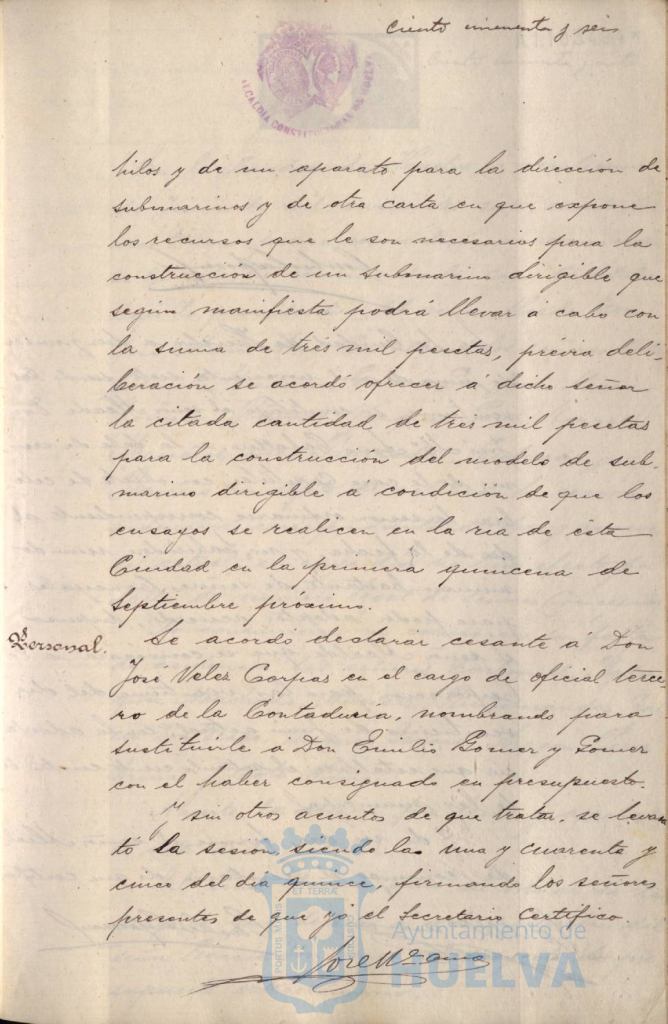 Ciento cincuenta y seis
ALCALDIA CONSTITUCIONAL DE HUELVA
hilos y de un aparato para la dirección de
submarinos y de otra carta en que expone
los recursos que le son necesarios para la
construcción de un submarino dirigible que
según manifiesta podrá llevar á cabo con
la suma de tres mil pesetas, prévia deli-
beración se acordó ofrecer á dicho señor
la citada cantidad de tres mil pesetas
para la construcción del modelo de sub-
marino dirigible á condición de que los
ensayos se realicen en la ria de esta
Ciudad en la primera quincena de
Septiembre próximo.
Personal. Se acordó declarar cesante á Don
José Velez Corpas en el cargo de oficial terce
ro de la Contaduria, nombrando para
sustituirle á Don Emilio Gomez y Gomez
con el haber consignado en presupuesto.
Y sin otros asuntos de que tratar, se levan
tó la sesión siendo la una y cuarenta y
cinco del dia quince, firmando los señores
presentes de que yo el Secretario Certifico.
PORTUS MARIS ET TERRAE CUSTODIA
Ayuntamiento de
HUELVA